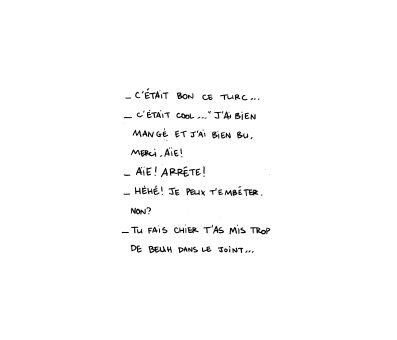 _ C'ÉTAIT BON CE TURC...
_ C'ÉTAIT COOL..." J'AI BIEN
MANGÉ ET J'AI BIEN BU,
MERCI, AÏE!
_ AÏE! ARRÊTE!
_ HÉHÉ! JE PEUX T'EMBÉTER.
NON?
_ TU FAIS CHIER T'AS MIS TROP
DE BEUH DANS LE JOINT...